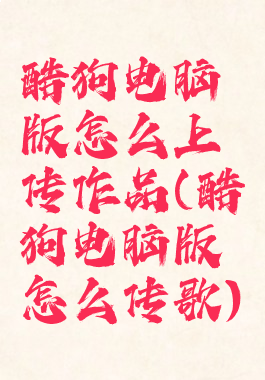 酷狗电脑
版怎么上
传作品(酷
狗电脑版
怎么传歌)